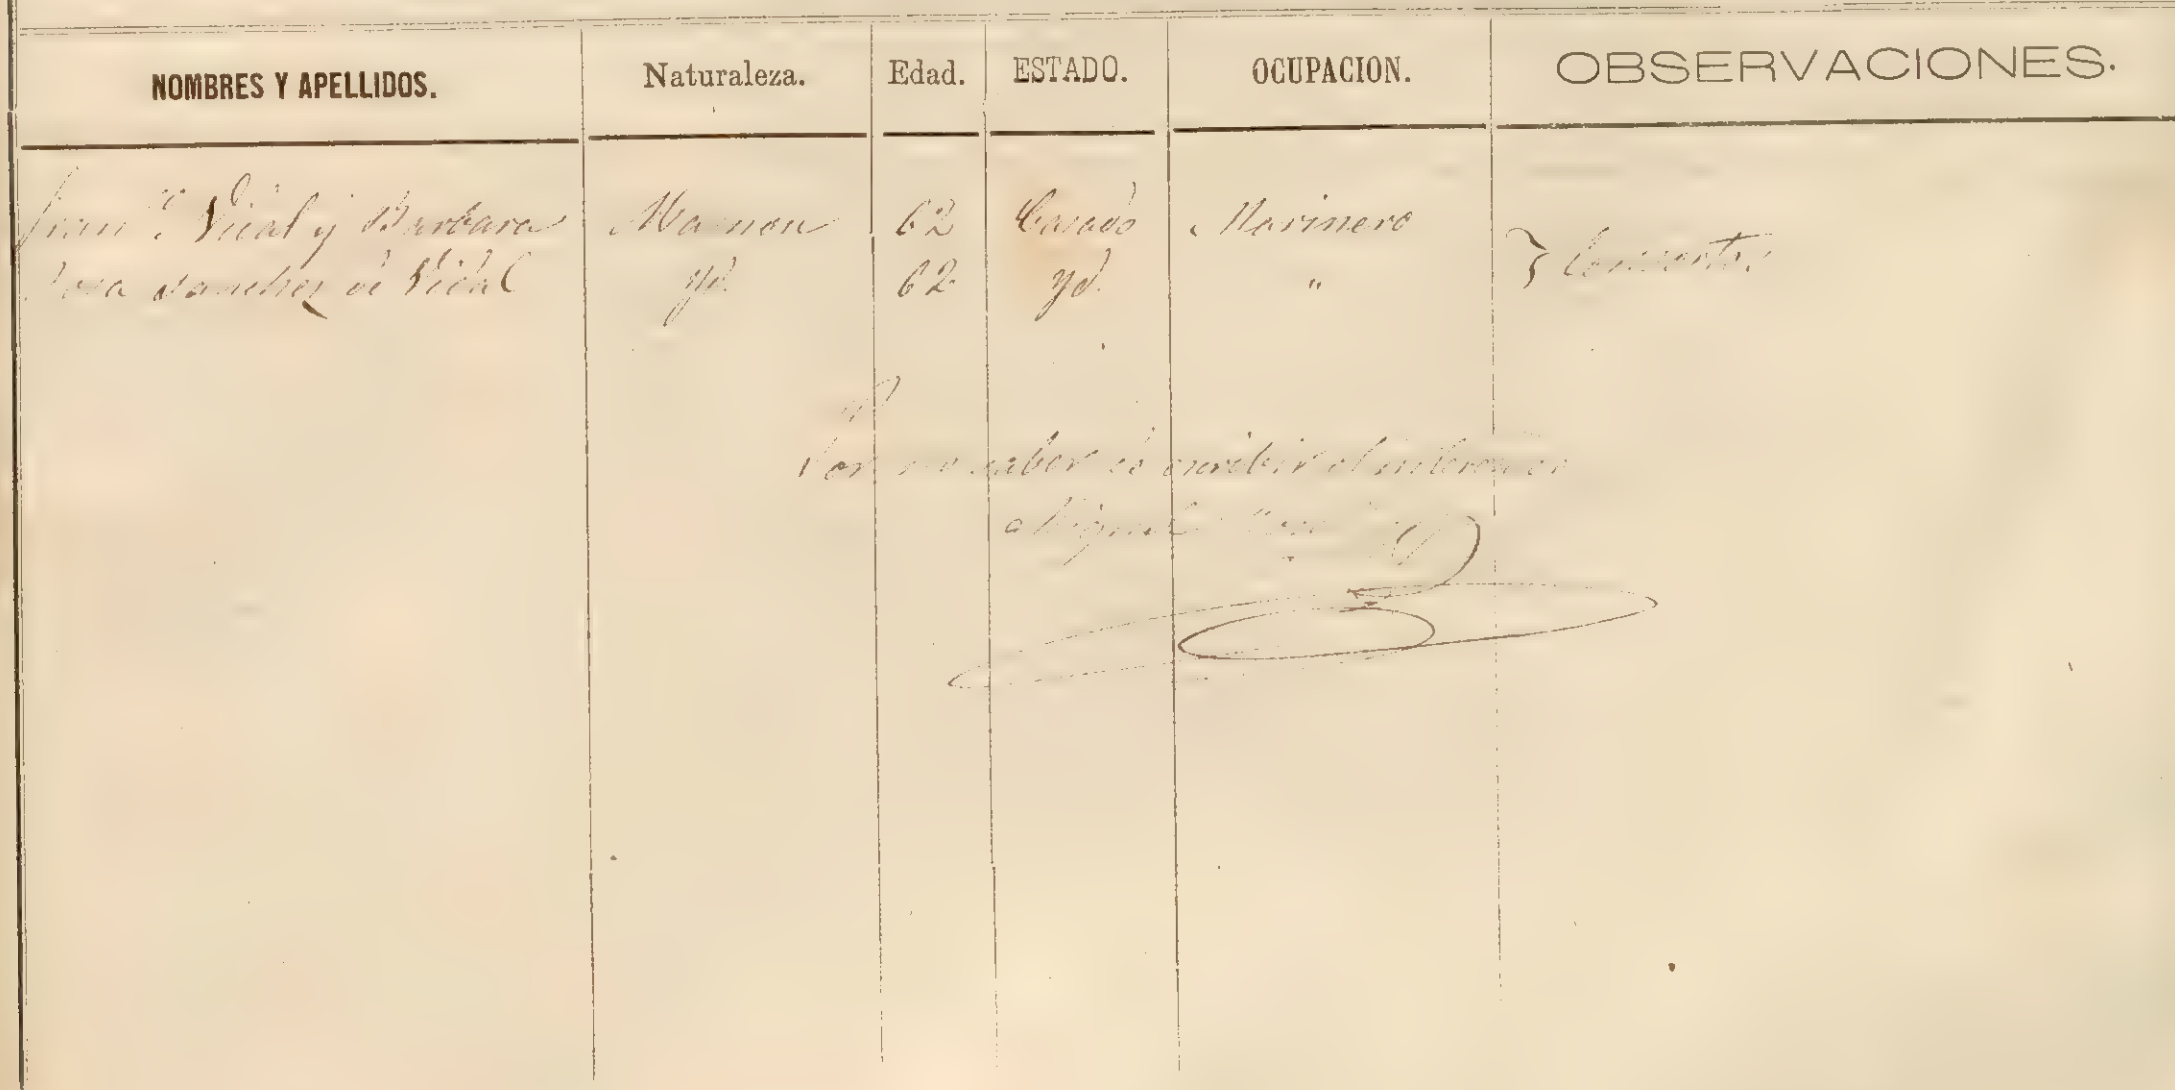 NOMBRES Y APELLIDOS. Naturaleza. Edad. ESTADO. OCUPACION. OBSERVACIONES.
Vidal y Barbara Mahon 62 Casado Marinero
Sanchez de Vidal yd. 62 yd. "
Por no saber de escribir el
Miguel